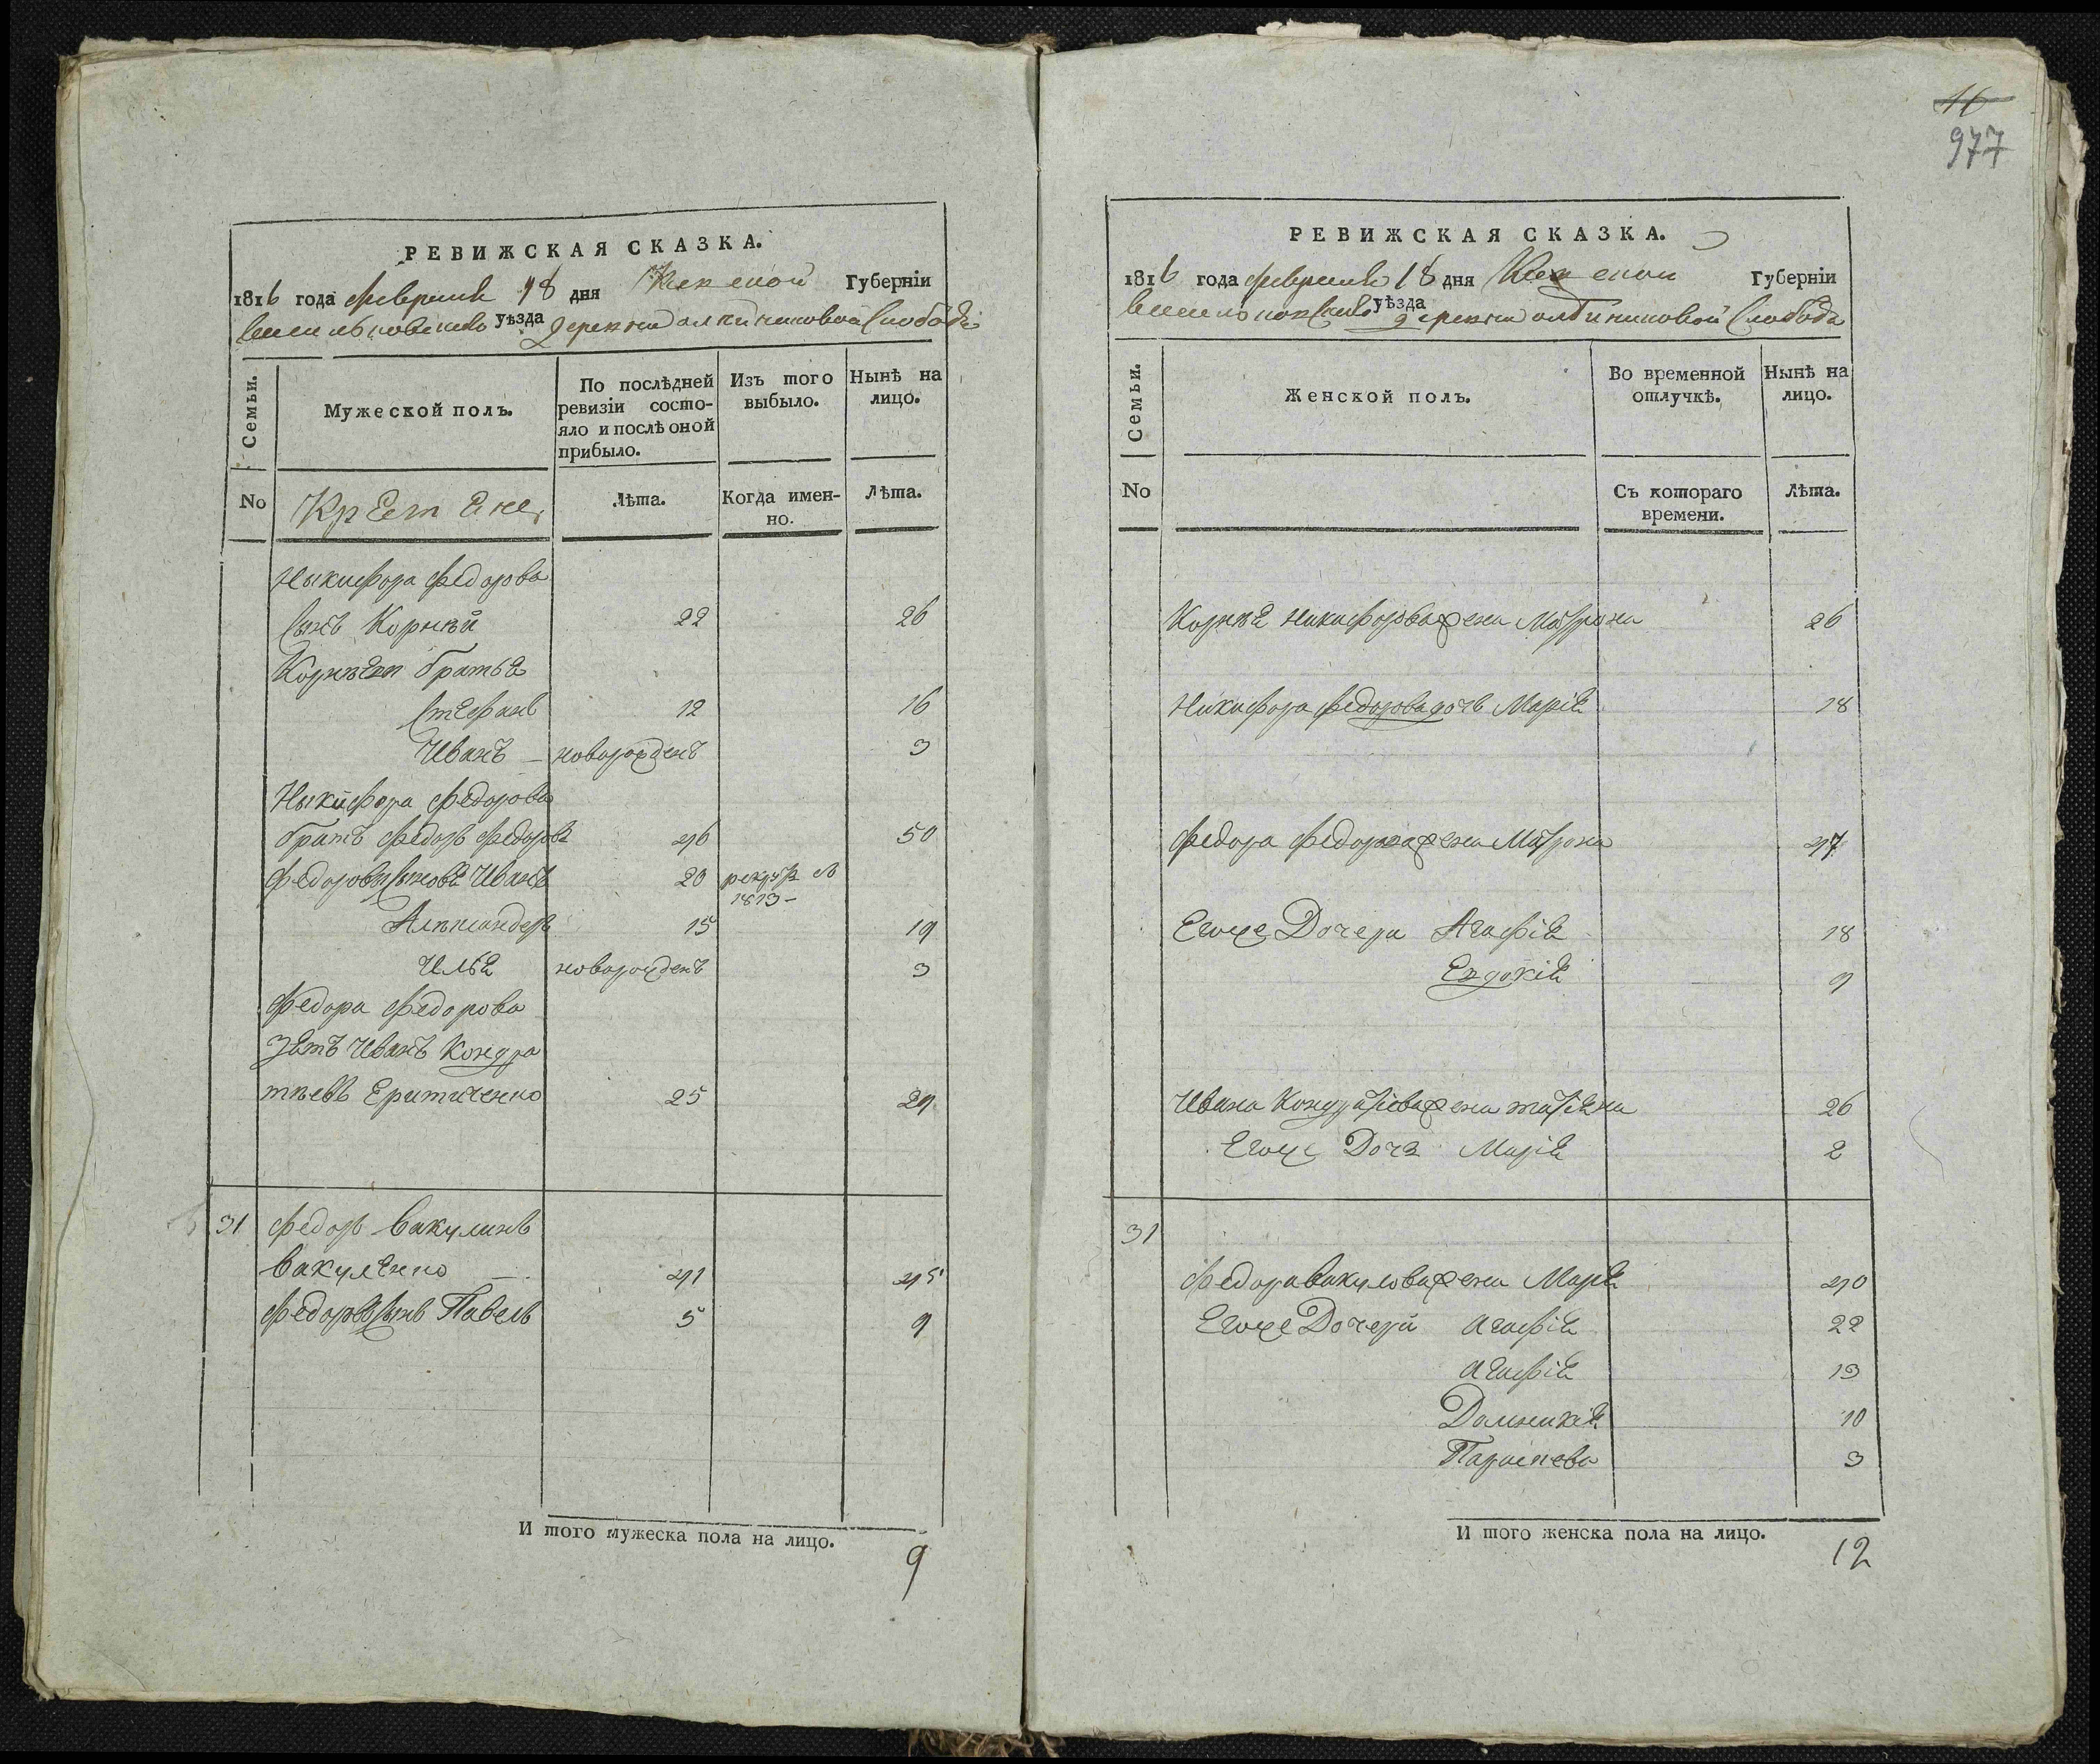 РЕВИЖСКАЯ СКАЗКА.
1816 года февраля 18 дня Киевской Губерніи
Васильковскаго уѣзда деревни Слободы
Семьи. Мужеской полъ. По послѣдней ревизіи состояло и послѣ оной прибыло. Изъ того выбыло. Нынѣ на лицо.
No Крестяне, Лѣта. Когда именно. Лѣта.
Никифора Федорова
Сынъ Корнѣй 22 26
Корнѣя братья
Стефанъ 12 16
Иванъ — новорожденъ 3
Никифора Федорова
братъ Федоръ Федоровъ 46 50
Федоровы сыновя Иванъ 20 рекрут въ
1813 –
Александеръ 15 19
Илья новорожденъ 3
Федора Федорова
Зять Иванъ Кондра
тѣевъ 25 29
31 Федоръ Вакулинъ
Вакуленко — 41 45
Федоровъ сынъ Павелъ 5 9
И того мужеска пола на лицо.
9
16
977
РЕВИЖСКАЯ СКАЗКА.
1816 года февраля 18 дня Киевской Губерніи
Васильковскаго уѣзда деревни Слободы
Семьи. Женской полъ. Во временной отлучкѣ. Нынѣ на лицо.
No Съ котораго времени. Лѣта.
Корнѣя Никифорова жена Матрона 26
Никифора Федорова дочь Марія 18
Федора Федорова жена Матрона 47
Егоже Дочери Агафія 18
Евдокія 9
Ивана Кондратіева жена татіяна 26
Егоже Дочь Марія 2
31
Федора Вакулова жена Марія 40
Егоже Дочери Агафія 22
Агафія 13
Домникія 10
Параскева 3
И того женска пола на лицо.
12